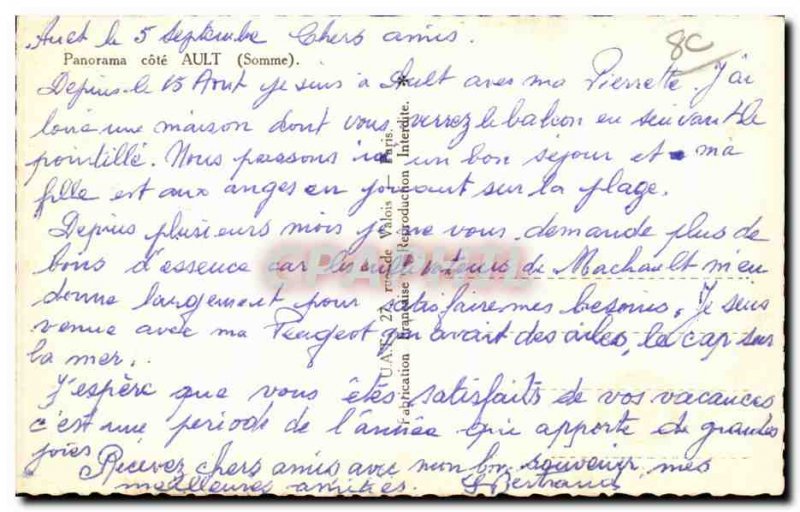 Ault le 5 Septembre Chers amis.
8C
Panorama côté AULT (Somme).
Depuis le 15 Aout je suis à Ault avec ma Pierrette. J'ai
loué une maison dont vous verrez le balcon en suivant le
pointillé. Nous passons ici un bon séjour et ma
fille est aux anges en jouant sur la plage.
Depuis plusieurs mois je ne vous demande plus de
bons d'essence car les cultivateurs de Machault m'en
donne largement pour satisfaire mes besoins. Je suis
venue avec ma Peugeot qui avait des ailes, le cap sur
la mer..
J'espère que vous êtes satisfaits de vos vacances
c'est une période de l'année qui apporte de grandes
joies
Recevez chers amis avec mon bon souvenir, mes
meilleures amitiés. Bertrand
27, rue de Valois — Paris.
Fabrication Française - Reproduction Interdite.
CPARAMA